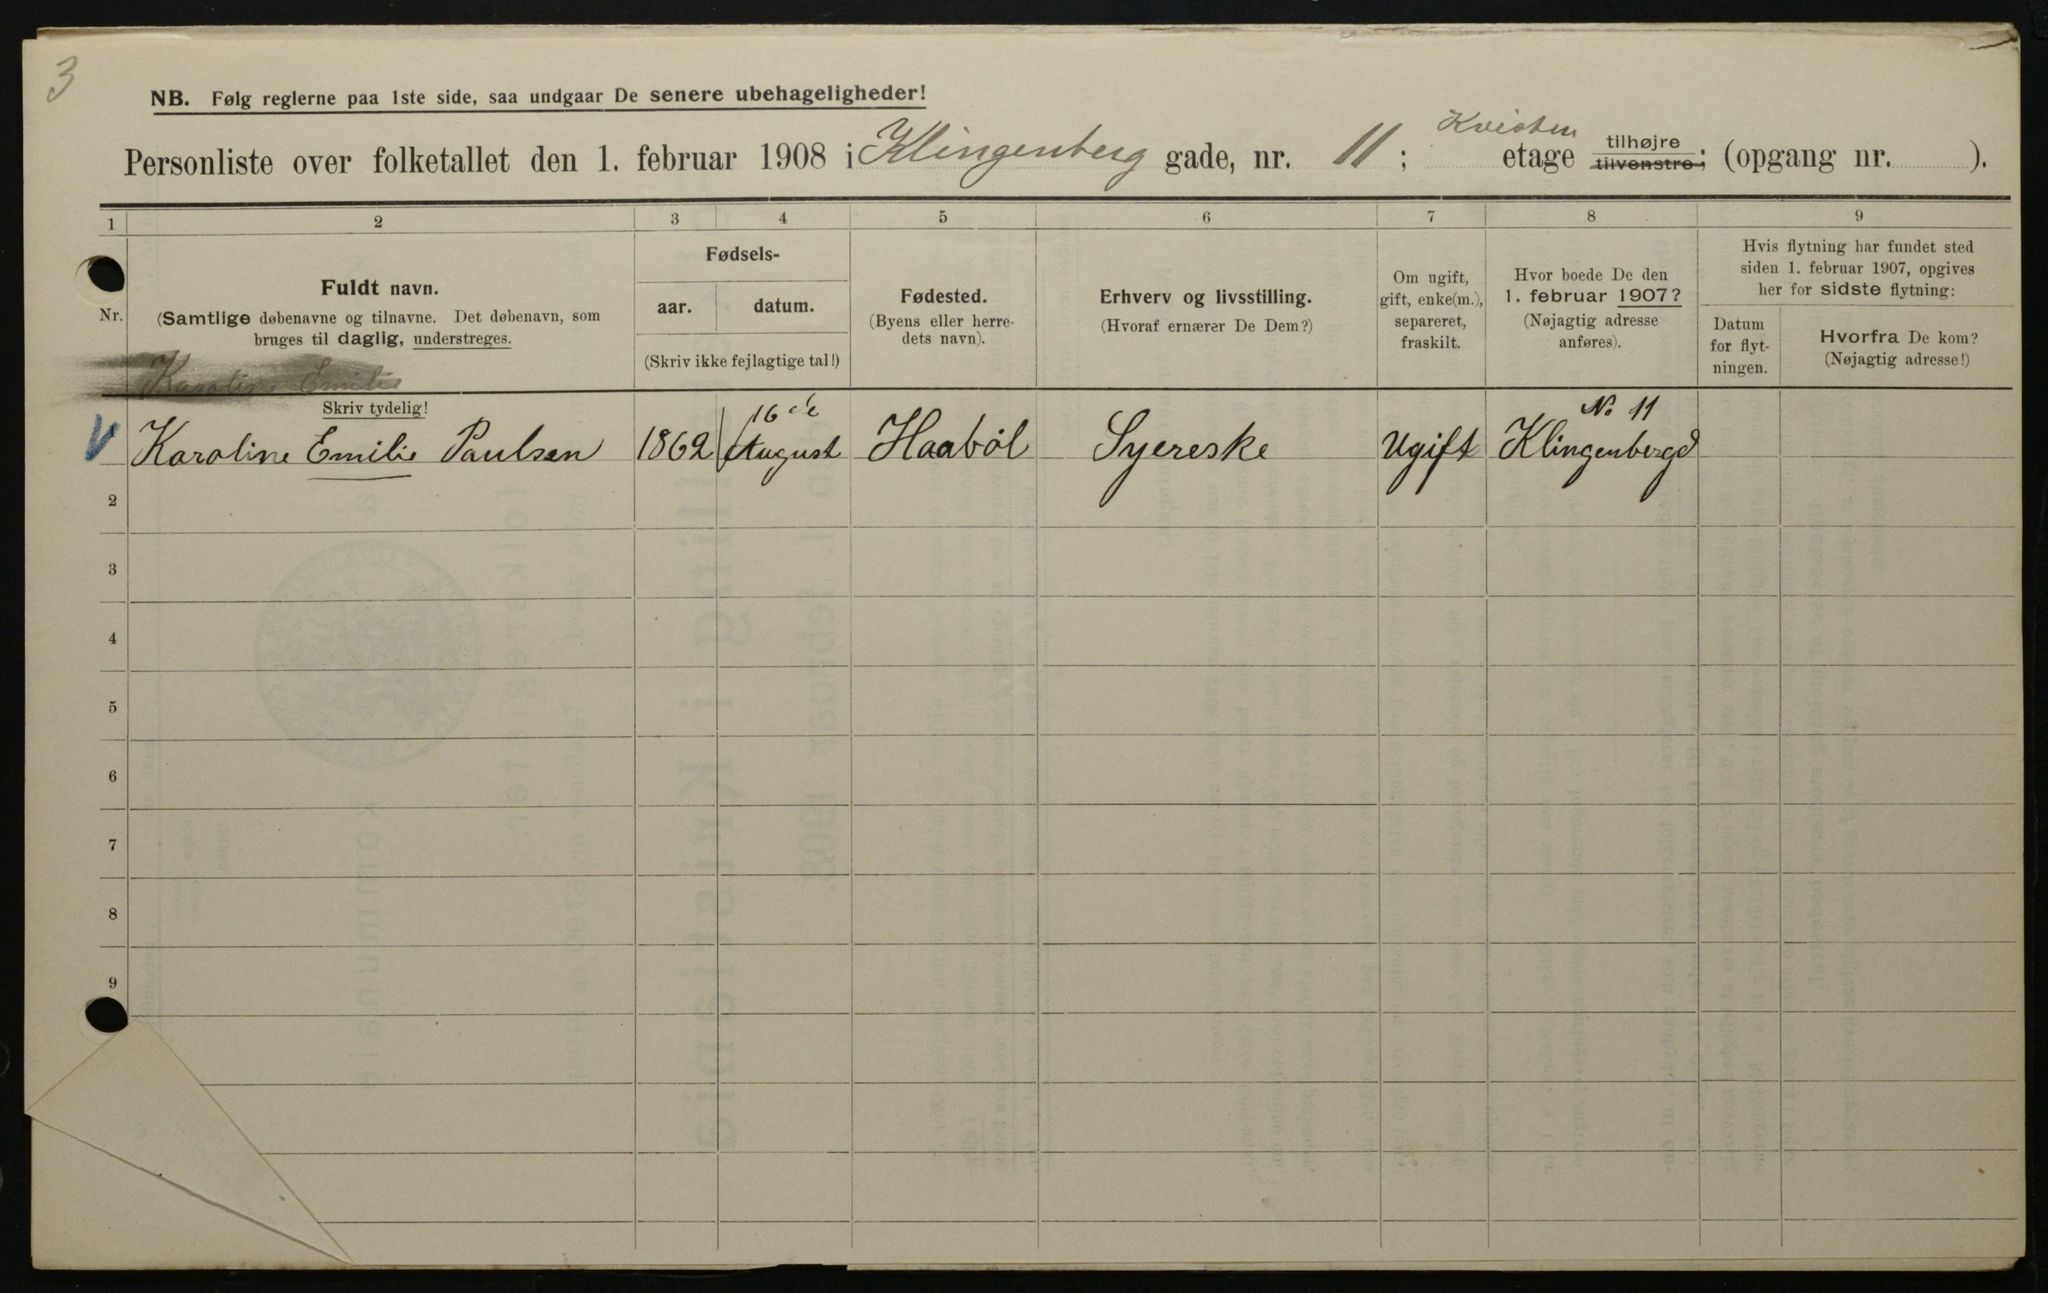 3
NB. Følg reglerne paa 1ste side, saa undgaar De senere ubehageligheder!
Personliste over folketallet den 1. februar 1908 i Klingenberg gade, nr. 11; Kvisten etage tilhøjre tilvenstre; (opgang nr. ).
1 2 3 4 5 6 7 8 9
Nr.
Fuldt navn.
(Samtlige døbenavne og tilnavne. Det døbenavn, som
bruges til daglig, understreges.
Karoline Emilie
Skriv tydelig!
Fødsels-
aar. datum.
(Skriv ikke fejlagtige tal!)
Fødested.
(Byens eller herre-
dets navn).
Erhverv og livsstilling.
(Hvoraf ernærer De Dem?)
Om ugift,
gift, enke(m.),
separeret,
fraskilt.
Hvor boede De den
1. februar 1907?
(Nøjagtig adresse
anføres).
Hvis flytning har fundet sted
siden 1. februar 1907, opgives
her for sidste flytning:
Datum
for flyt-
ningen.
Hvorfra De kom?
(Nøjagtig adresse!)
16de No 11
Karoline Emilie Paulsen 1862 August Haabøl Syereske Ugift Klingenbergd
2
3
4
5
6
7
8
9